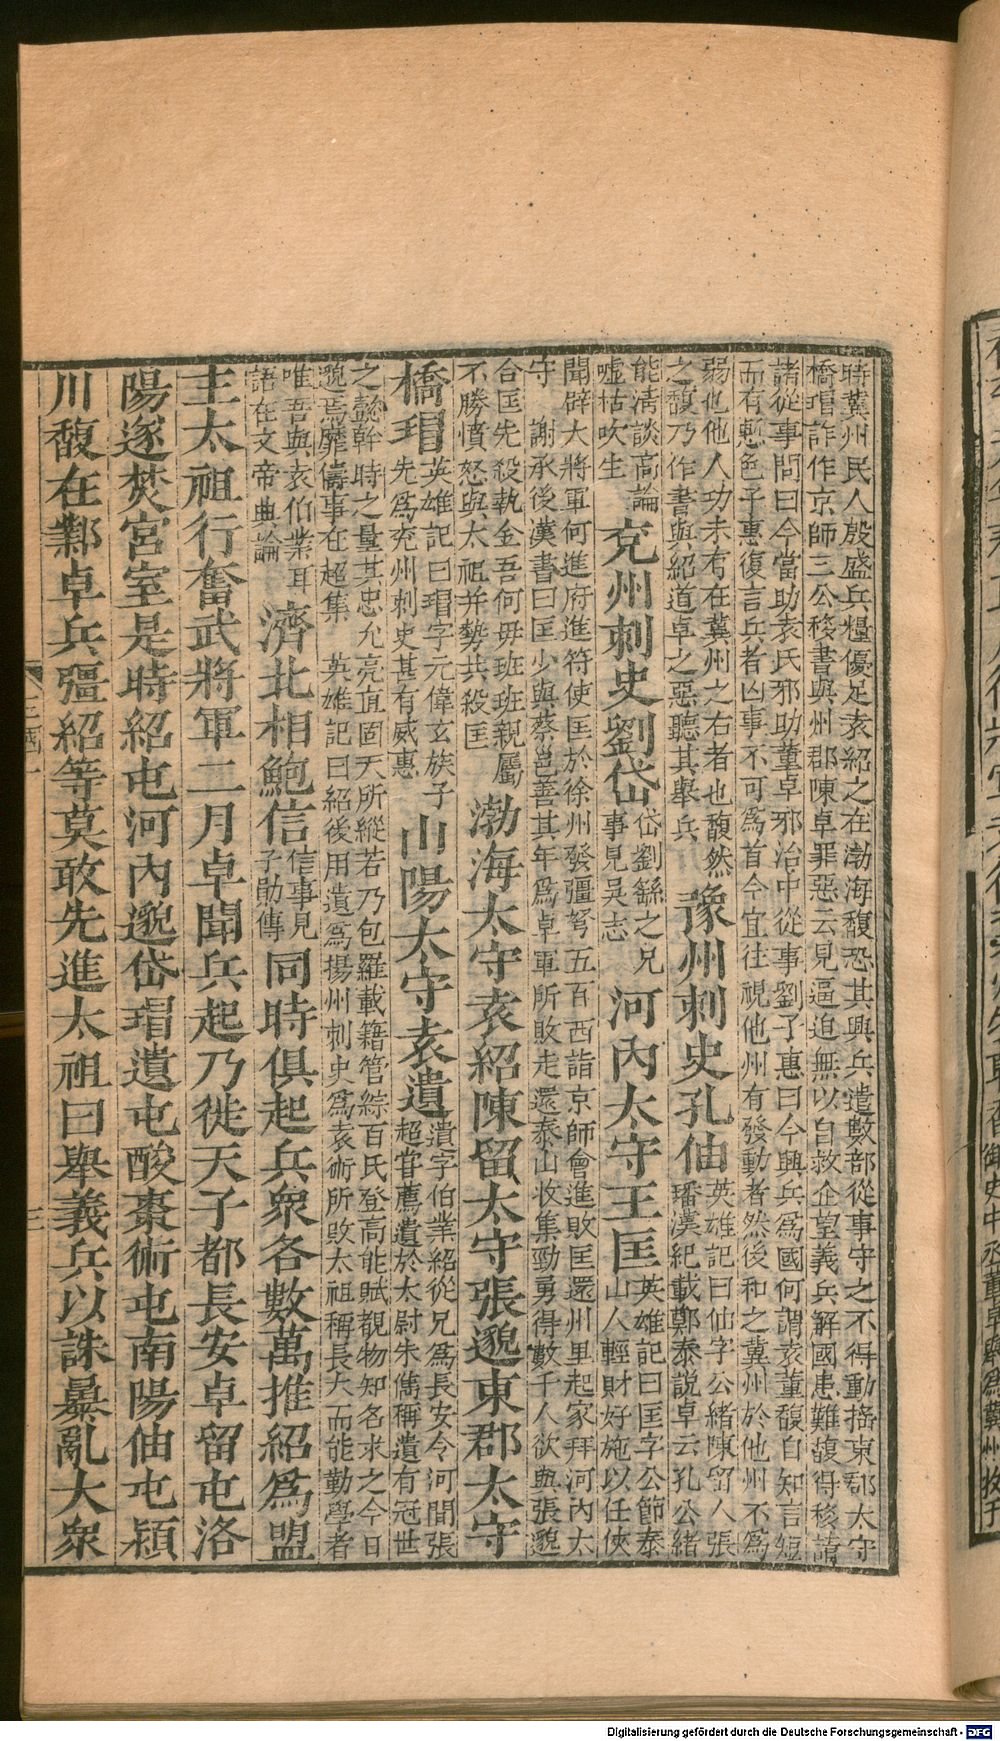 御史中丞董卓舉爲冀州牧于
時冀州民人殷盛兵糧優足袁紹之在渤海馥恐其興兵遣數部從事守之不得動搖東郡太守
橋瑁詐作京師三公移書與州郡陳卓罪惡云見逼迫無以自救企望義兵解國患難馥得移請
諸從事問曰今當助袁氏邪助董卓邪治中從事劉子惠曰今興兵爲國何謂袁董馥自知言短
而有慙色子惠復言兵者凶事不可爲首今宜往視他州有發動者然後和之冀州於他州不爲
弱也他人功未有在冀州之右者也馥然
之馥乃作書與紹道卓之惡聽其舉兵
豫州刺史孔伷
英雄記曰伷字公緒陳留人張
璠漢紀載鄭泰說卓云孔公緒
能清談高論
噓枯吹生
兖州刺史劉岱
岱劉繇之兄
事見吳志
河內太守王匡
英雄記曰匡字公節泰
山人輕財好施以任俠
聞辟大將軍何進府進符使匡於徐州發彊弩五百西詣京師會進敗匡還州里起家拜河內太
守 謝承後漢書曰匡少與蔡邕善其年爲卓軍所敗走還泰山收集勁勇得數千人欲與張邈
合匡先殺執金吾何毋班班親屬
不勝憤怒與太祖并勢共殺匡
渤海太守袁紹陳留太守張邈東郡太守
橋瑁
英雄記曰瑁字元偉玄族子
先爲兖州刺史甚有威惠
山陽太守袁遺
遺字伯業紹從兄爲長安令河間張
超嘗薦遺於太尉朱儁稱遺有冠世
之懿幹時之量其忠允亮直固天所縱若乃包羅載籍管綜百氏登高能賦覩物知名求之今日
邈焉靡儔事在超集 英雄記曰紹後用遺爲揚州刺史爲袁術所敗太祖稱長大而能勤學者
唯吾與袁伯業耳
語在文帝典論
濟北相鮑信
信事見
子勛傳
同時俱起兵衆各數萬推紹爲盟
主太祖行奮武將軍二月卓聞兵起乃徙天子都長安卓留屯洛
陽遂焚宮室是時紹屯河內邈岱瑁遺屯酸棗術屯南陽伷屯潁
川馥在鄴卓兵彊紹等莫敢先進太祖曰舉義兵以誅暴亂大衆
三國一
三
Digitalisierung gefördert durch die Deutsche Forschungsgemeinschaft - DFG